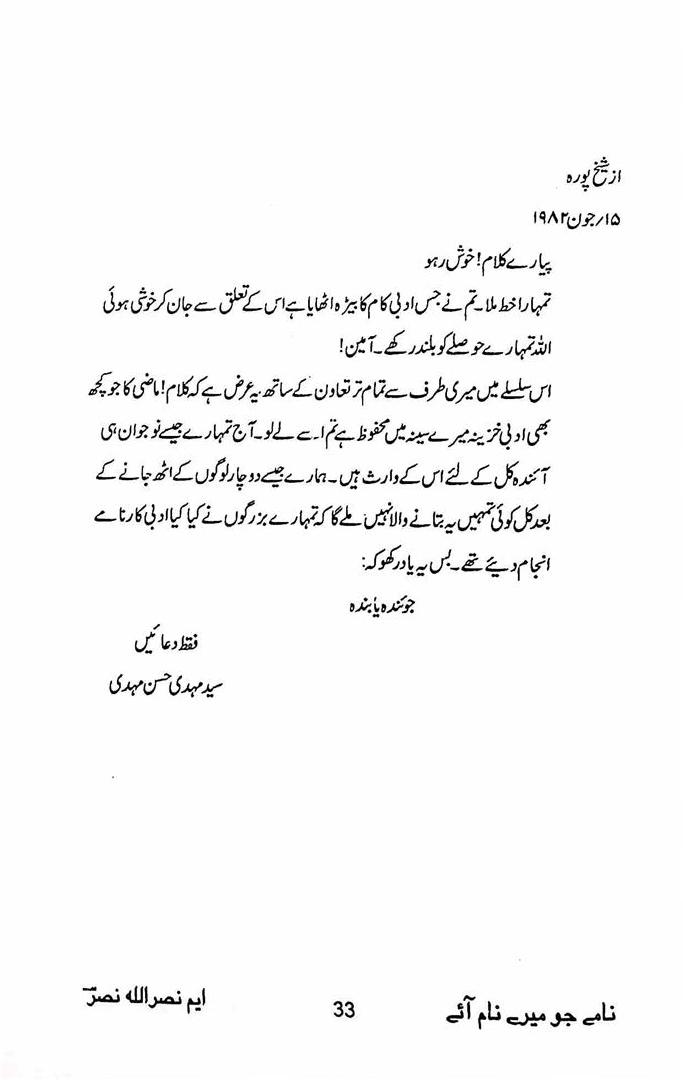 از شیخ پورہ
۱۵؍جون ۱۹۸۲
پیارے کلام! خوش رہو
تمہارا خط ملا۔ تم نے جس ادبی کام کا بیڑہ اٹھایا ہے اس کے تعلق سے جان کر خوشی ہوئی
اللہ تمہارے حوصلے کو بلند رکھے۔ آمین!
اس سلسلے میں میری طرف سے تمام تر تعاون کے ساتھ یہ عرض ہے کہ کلام! ماضی کا جو کچھ
بھی ادبی خزینہ میرے سینہ میں محفوظ ہے تم اسے لے لو۔ آج تمہارے جیسے نوجوان ہی
آئندہ کل کے لئے اس کے وارث ہیں۔ ہمارے جیسے دو چار لوگوں کے اٹھ جانے کے
بعد کل کوئی تمہیں یہ بتانے والا نہیں ملے گا کہ تمہارے بزرگوں نے کیا کیا ادبی کارنامے
انجام دیئے تھے۔ بس یہ یاد رکھو کہ:
جوئندہ یابندہ
فقط دعائیں
سید مہدی حسن مہدی
نامے جو میرے نام آئے 33 ایم نصر اللہ نصرؔ